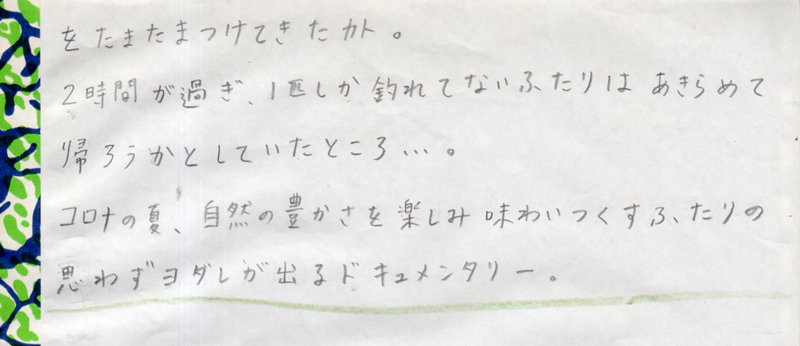 をたまたまつけてきたカト。
2時間が過ぎ、1匹しか釣れてないふたりはあきらめて
帰ろうかとしていたところ…。
コロナの夏、自然の豊かさを楽しみ味わいつくすふたりの
思わずヨダレが出るドキュメンタリー。